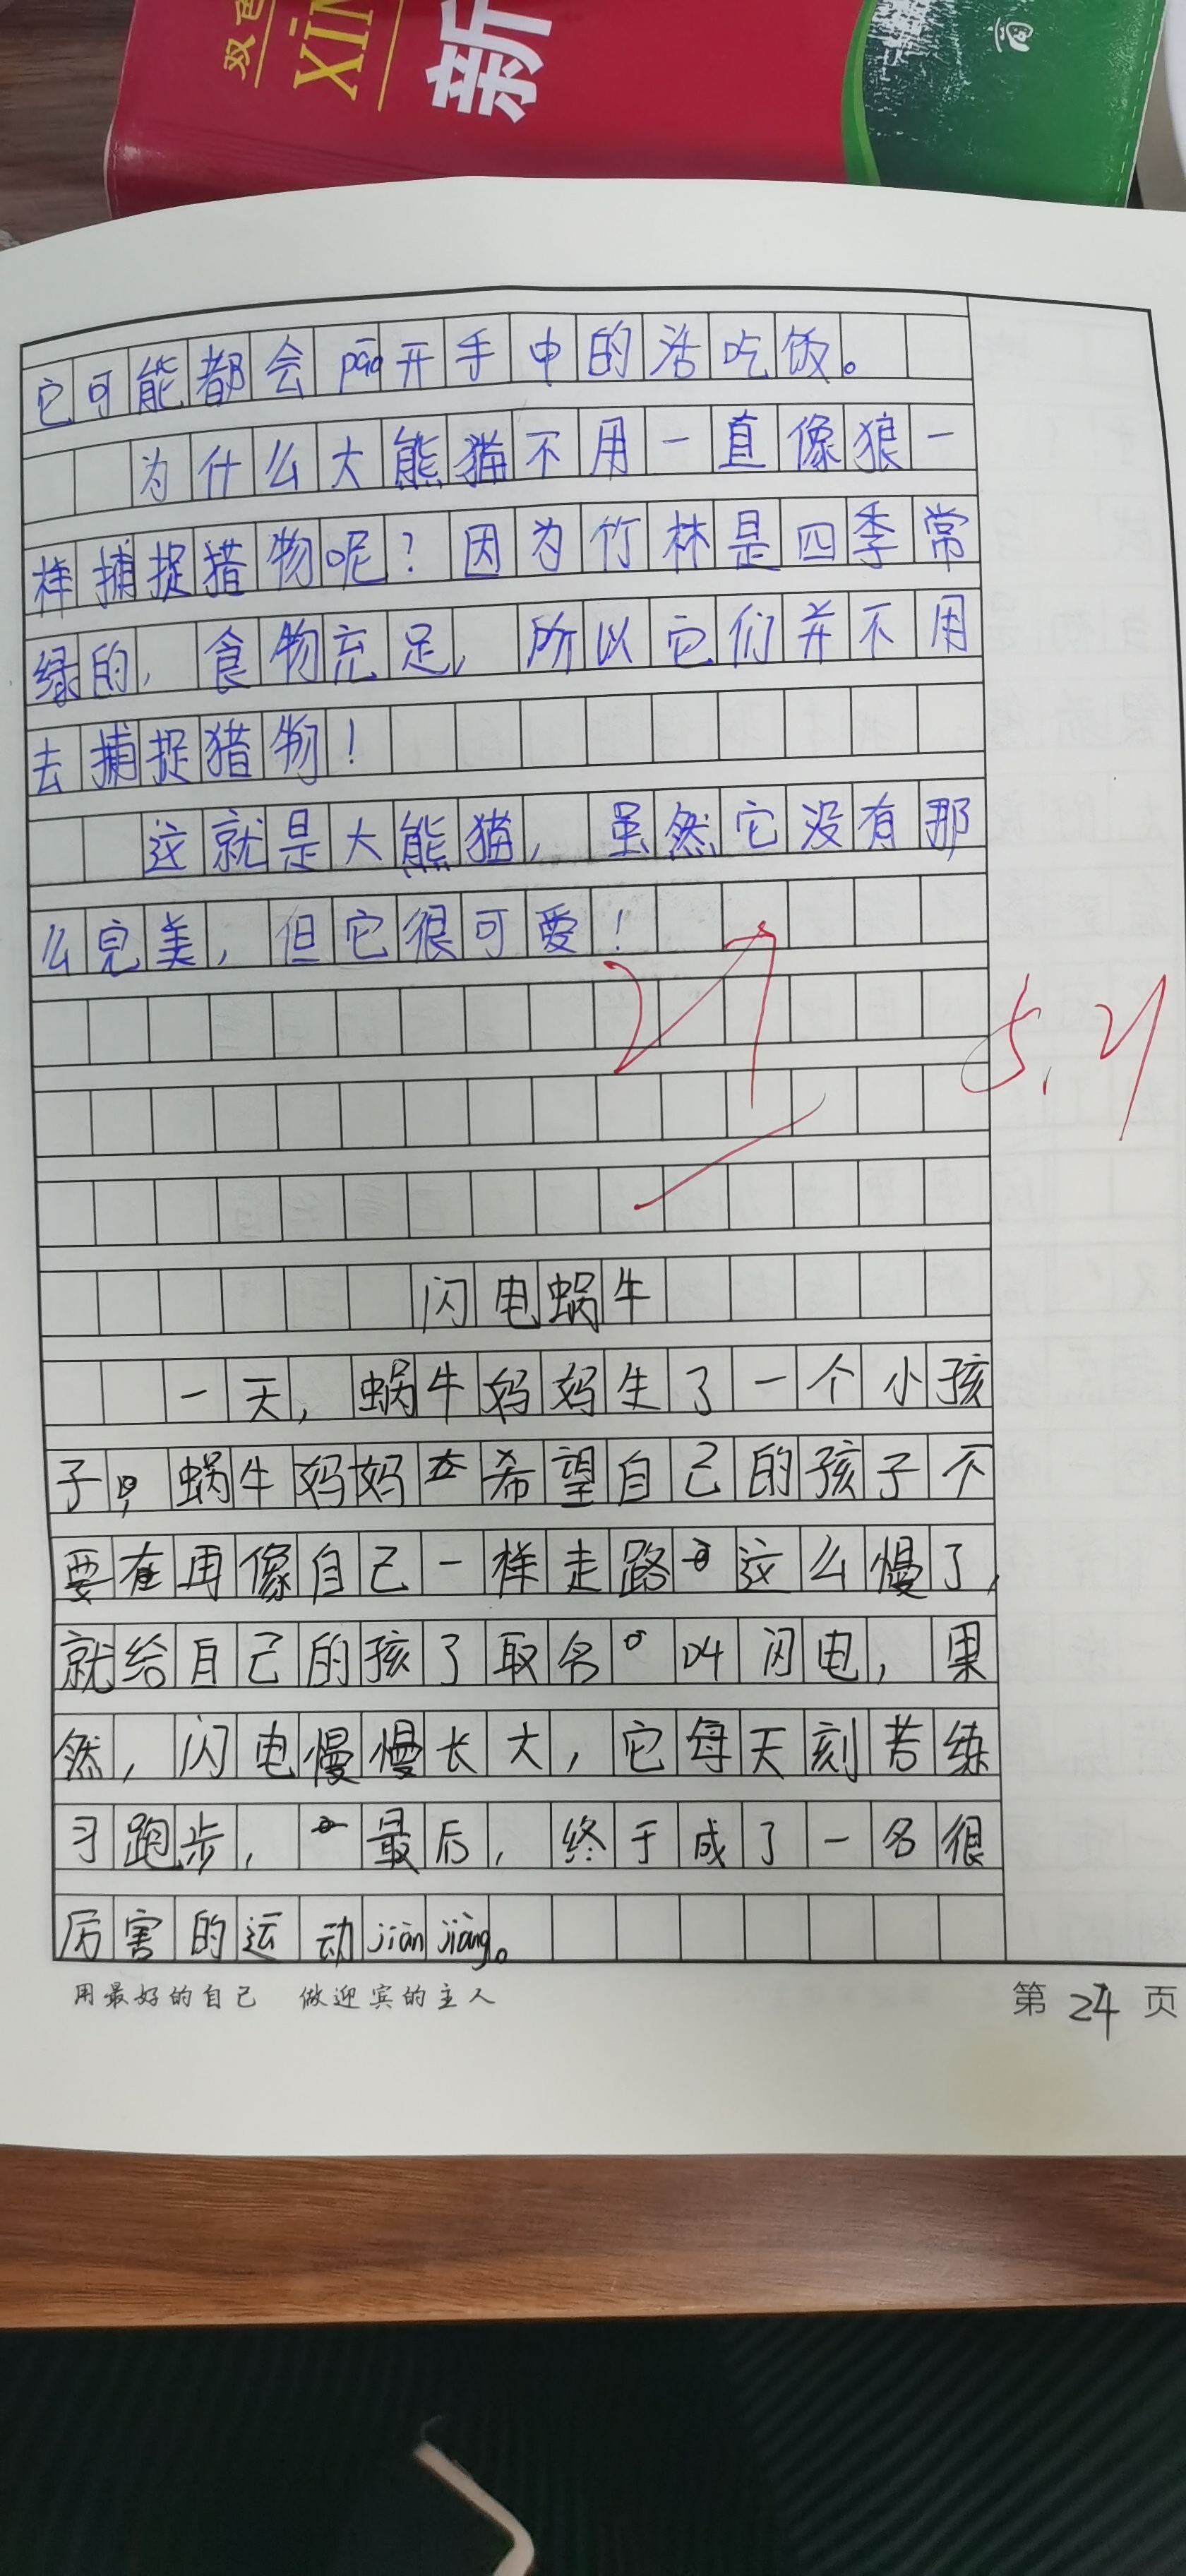 双色
XIN
新
商
它可能都会pāo开手中的活吃饭。
为什么大熊猫不用一直像狼一
样捕捉猎物呢？因为竹林是四季常
绿的，食物充足，所以它们并不用
去捕捉猎物！
这就是大熊猫，虽然它没有那
么完美，但它很可爱！
5.21
闪电蜗牛
一天，蜗牛妈妈生了一个小孩
子，蜗牛妈妈希望自己的孩子不
要在再像自己一样走路这么慢了，
就给自己的孩了取名叫闪电，果
然，闪电慢慢长大，它每天刻苦练
习跑步，最后，终于成了一名很
厉害的运动jiàn jiàng。
用最好的自己 做迎宾的主人
第24页